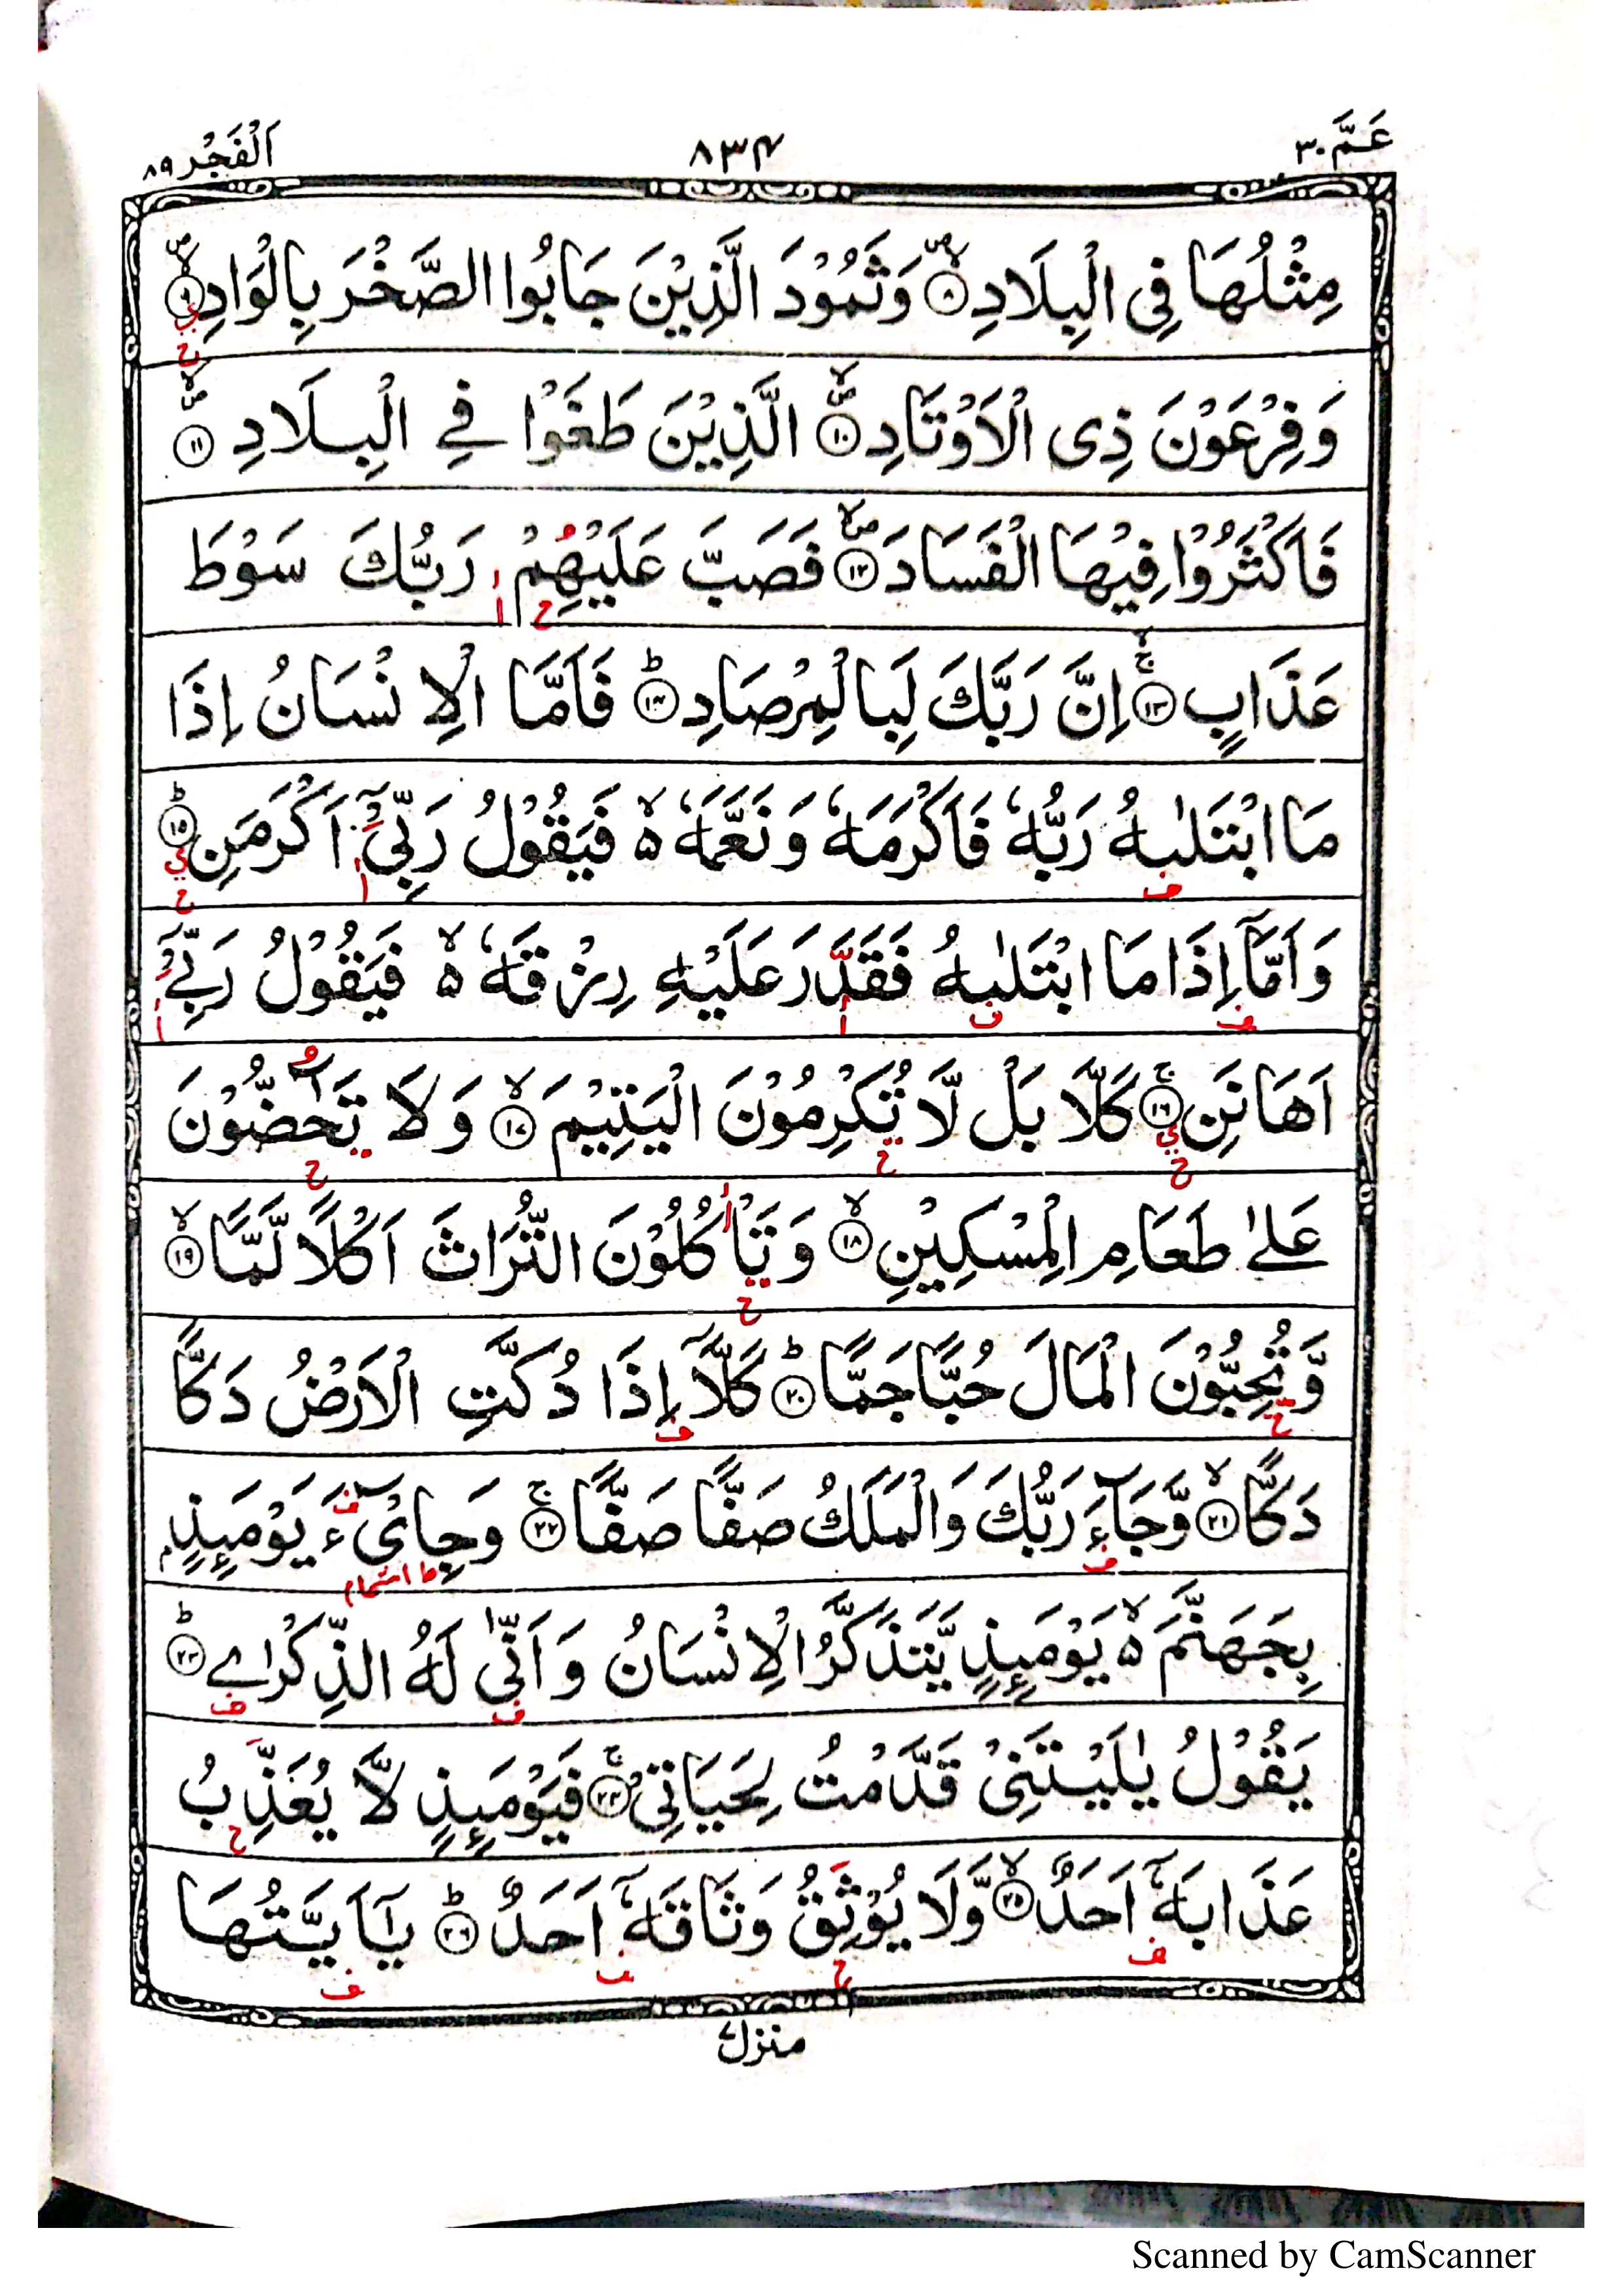 عَمَّ ٣٠
٨٣٤
اَلْفَجْر ٨٩
مِثْلُهَا فِى الْبِلَادِ ۝٨ وَثَمُوْدَ الَّذِيْنَ جَابُوا الصَّخْرَ بِالْوَادِ ۝٩
وَفِرْعَوْنَ ذِى الْاَوْتَادِ ۝١٠ الَّذِيْنَ طَغَوْا فِى الْبِلَادِ ۝١١
فَاَكْثَرُوْا فِيْهَا الْفَسَادَ ۝١٢ فَصَبَّ عَلَيْهِمْ رَبُّكَ سَوْطَ
عَذَابٍ ۝١٣ اِنَّ رَبَّكَ لَبِالْمِرْصَادِ ۝١٤ فَاَمَّا الْاِنْسَانُ اِذَا
مَا ابْتَلٰىهُ رَبُّهٗ فَاَكْرَمَهٗ وَنَعَّمَهٗ ەۙ فَيَقُوْلُ رَبِّىْٓ اَكْرَمَنِ ۝١٥
وَاَمَّآ اِذَا مَا ابْتَلٰىهُ فَقَدَرَ عَلَيْهِ رِزْقَهٗ ەۙ فَيَقُوْلُ رَبِّىْٓ
اَهَانَنِ ۝١٦ كَلَّا بَلْ لَّا تُكْرِمُوْنَ الْيَتِيْمَ ۝١٧ وَلَا تَحٰٓضُّوْنَ
عَلٰى طَعَامِ الْمِسْكِيْنِ ۝١٨ وَتَاْكُلُوْنَ التُّرَاثَ اَكْلًا لَّمًّا ۝١٩
وَّتُحِبُّوْنَ الْمَالَ حُبًّا جَمًّا ۝٢٠ كَلَّآ اِذَا دُكَّتِ الْاَرْضُ دَكًّا
دَكًّا ۝٢١ وَّجَآءَ رَبُّكَ وَالْمَلَكُ صَفًّا صَفًّا ۝٢٢ وَجِاىْٓءَ يَوْمَئِذٍۢ
بِجَهَنَّمَ ەۙ يَوْمَئِذٍ يَّتَذَكَّرُ الْاِنْسَانُ وَاَنّٰى لَهُ الذِّكْرٰى ۝٢٣
يَقُوْلُ يٰلَيْتَنِىْ قَدَّمْتُ لِحَيَاتِىْ ۝٢٤ فَيَوْمَئِذٍ لَّا يُعَذِّبُ
عَذَابَهٗٓ اَحَدٌ ۝٢٥ وَّلَا يُوْثِقُ وَثَاقَهٗٓ اَحَدٌ ۝٢٦ يٰٓاَيَّتُهَا
منزل ٧
Scanned by CamScanner